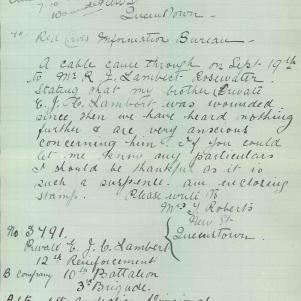 Queenstown.
To Red Cross Information Bureau -
A cable came through on Sept 19th
to Mr. R. J. Lambert Rosewater
stating that my brother Private
E. J. C. Lambert was wounded.
since then we have heard nothing
further & are very anxious
concerning him. If you could
let me know any particulars
I should be thankful as it is
such a suspense. am enclosing
stamp. Please write to
Mrs J. Roberts
New St.
Queenstown.
No 3491.
Private E. J. C. Lambert
12th Reinforcement
B Company 10th Battalion
3rd Brigade.